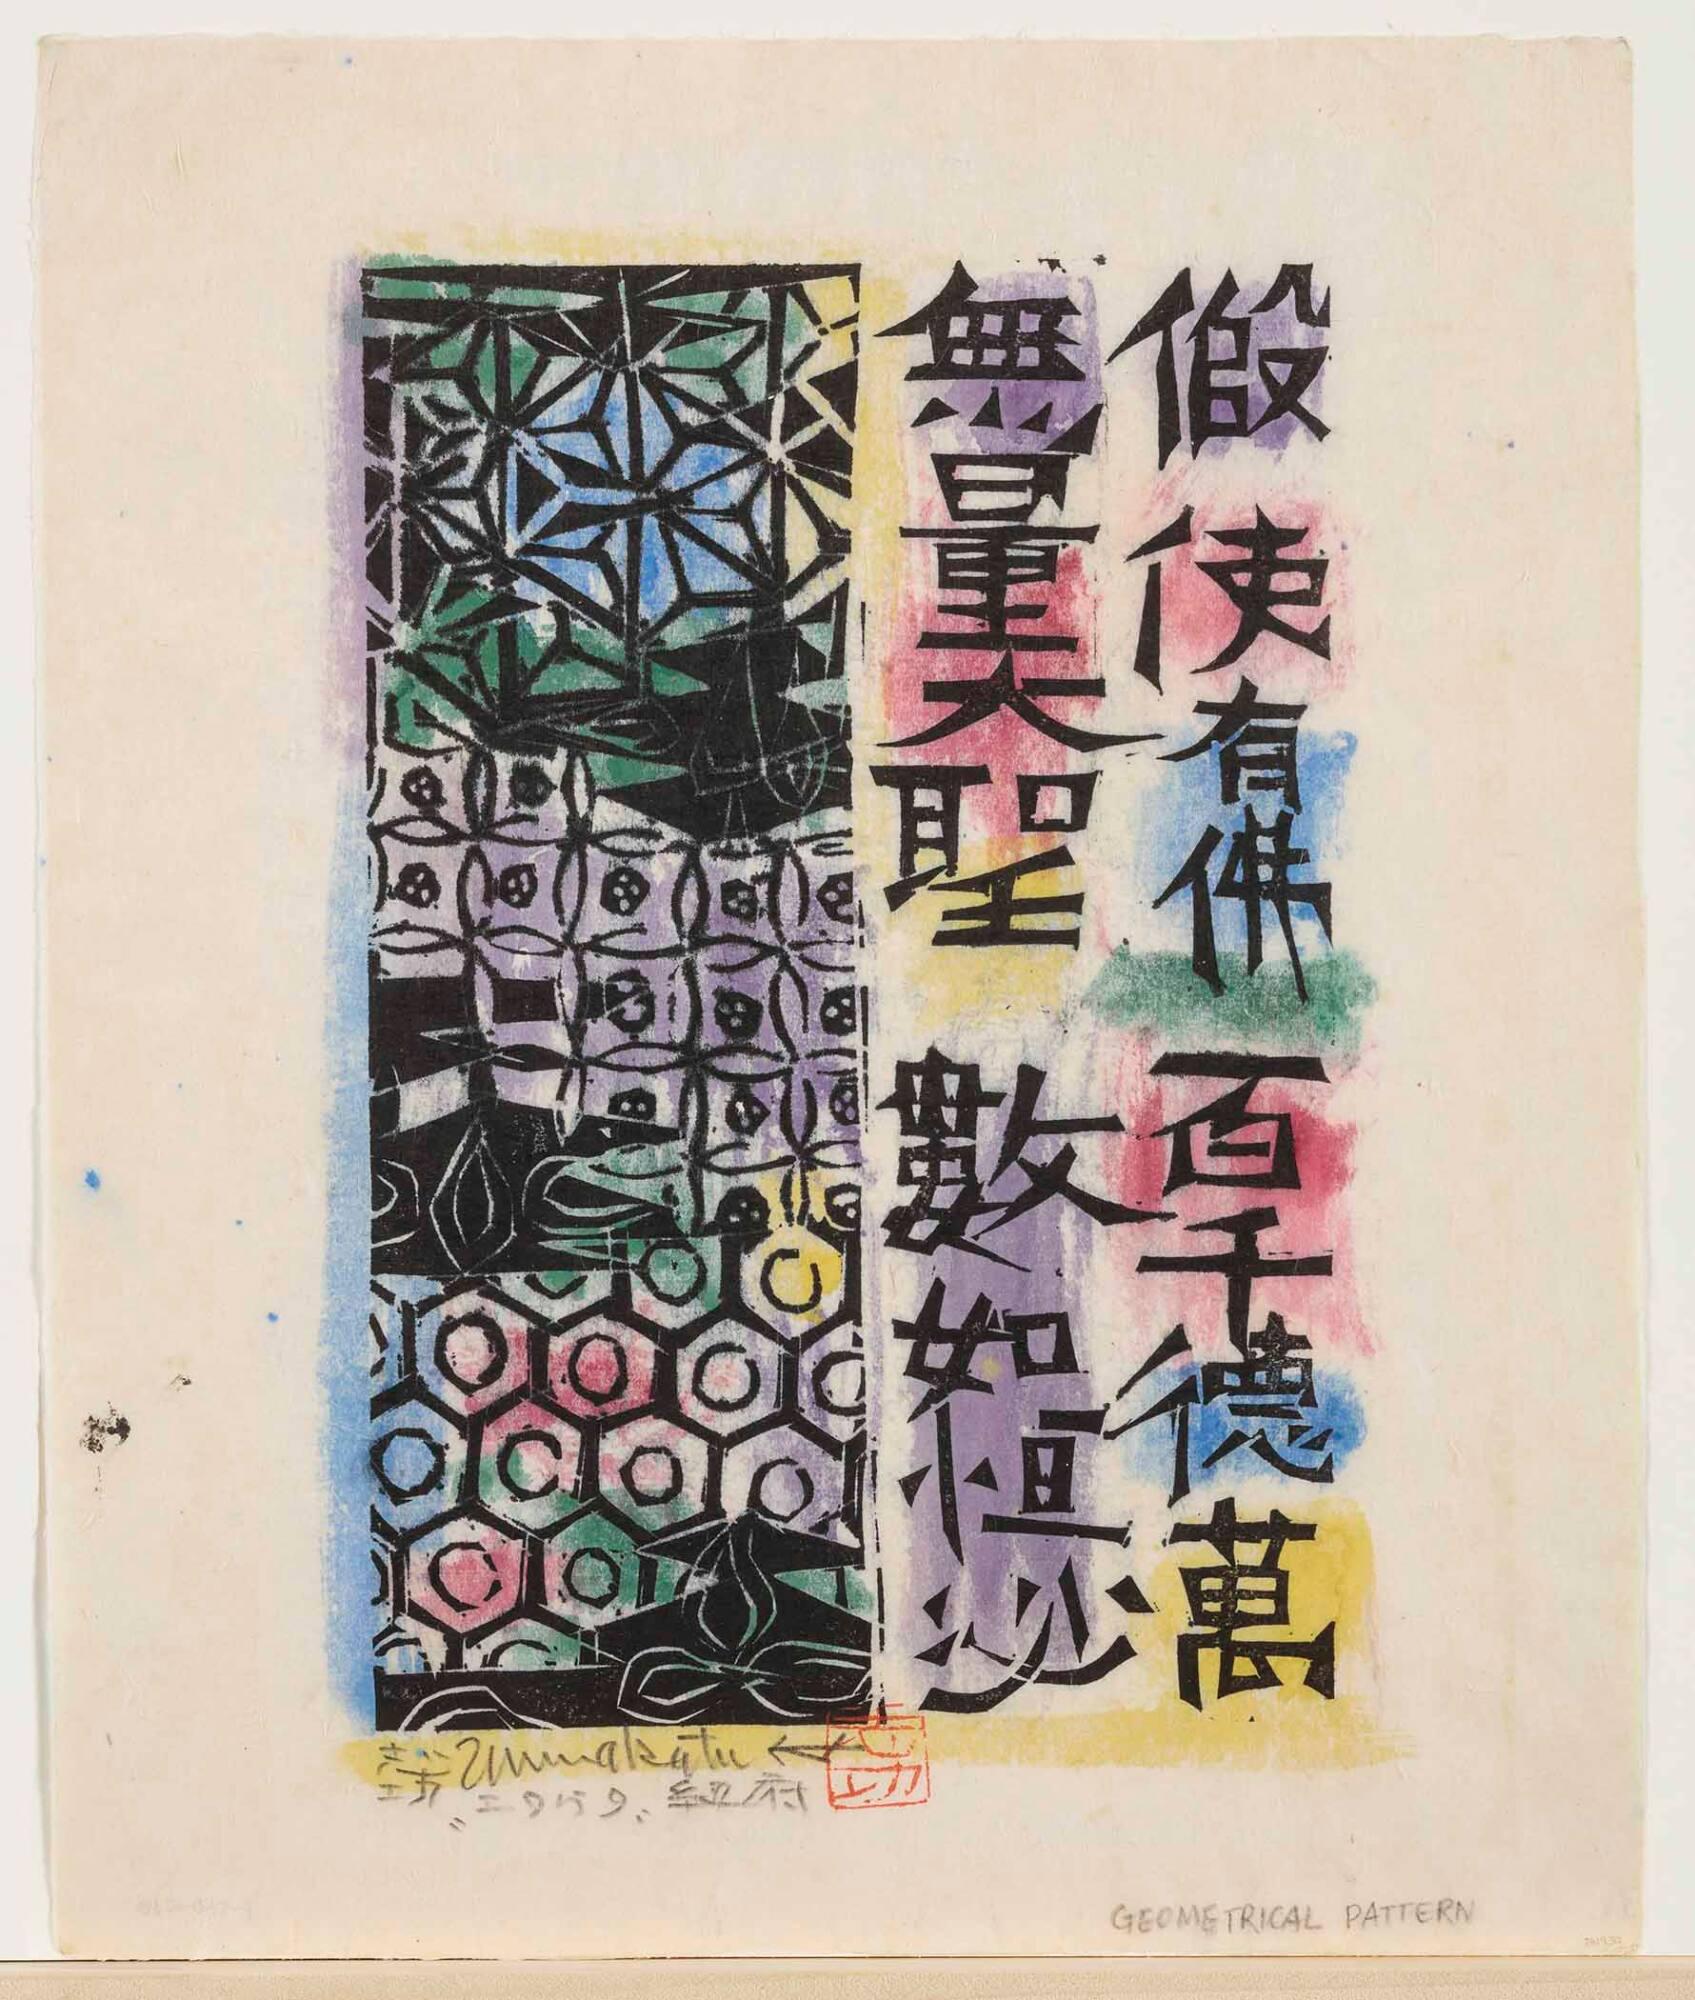 假使有佛百千德萬
無量大聖數如恒沙
志功
Munakata
紐府
GEOMETRICAL PATTERN